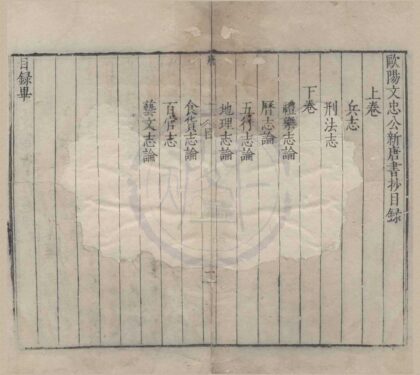 歐陽文忠公新唐書抄目録
上卷
兵志
刑法志
下卷
禮樂志論
曆志論
五行志論
地理志論
食貨志論
百官志
藝文志論
目録畢